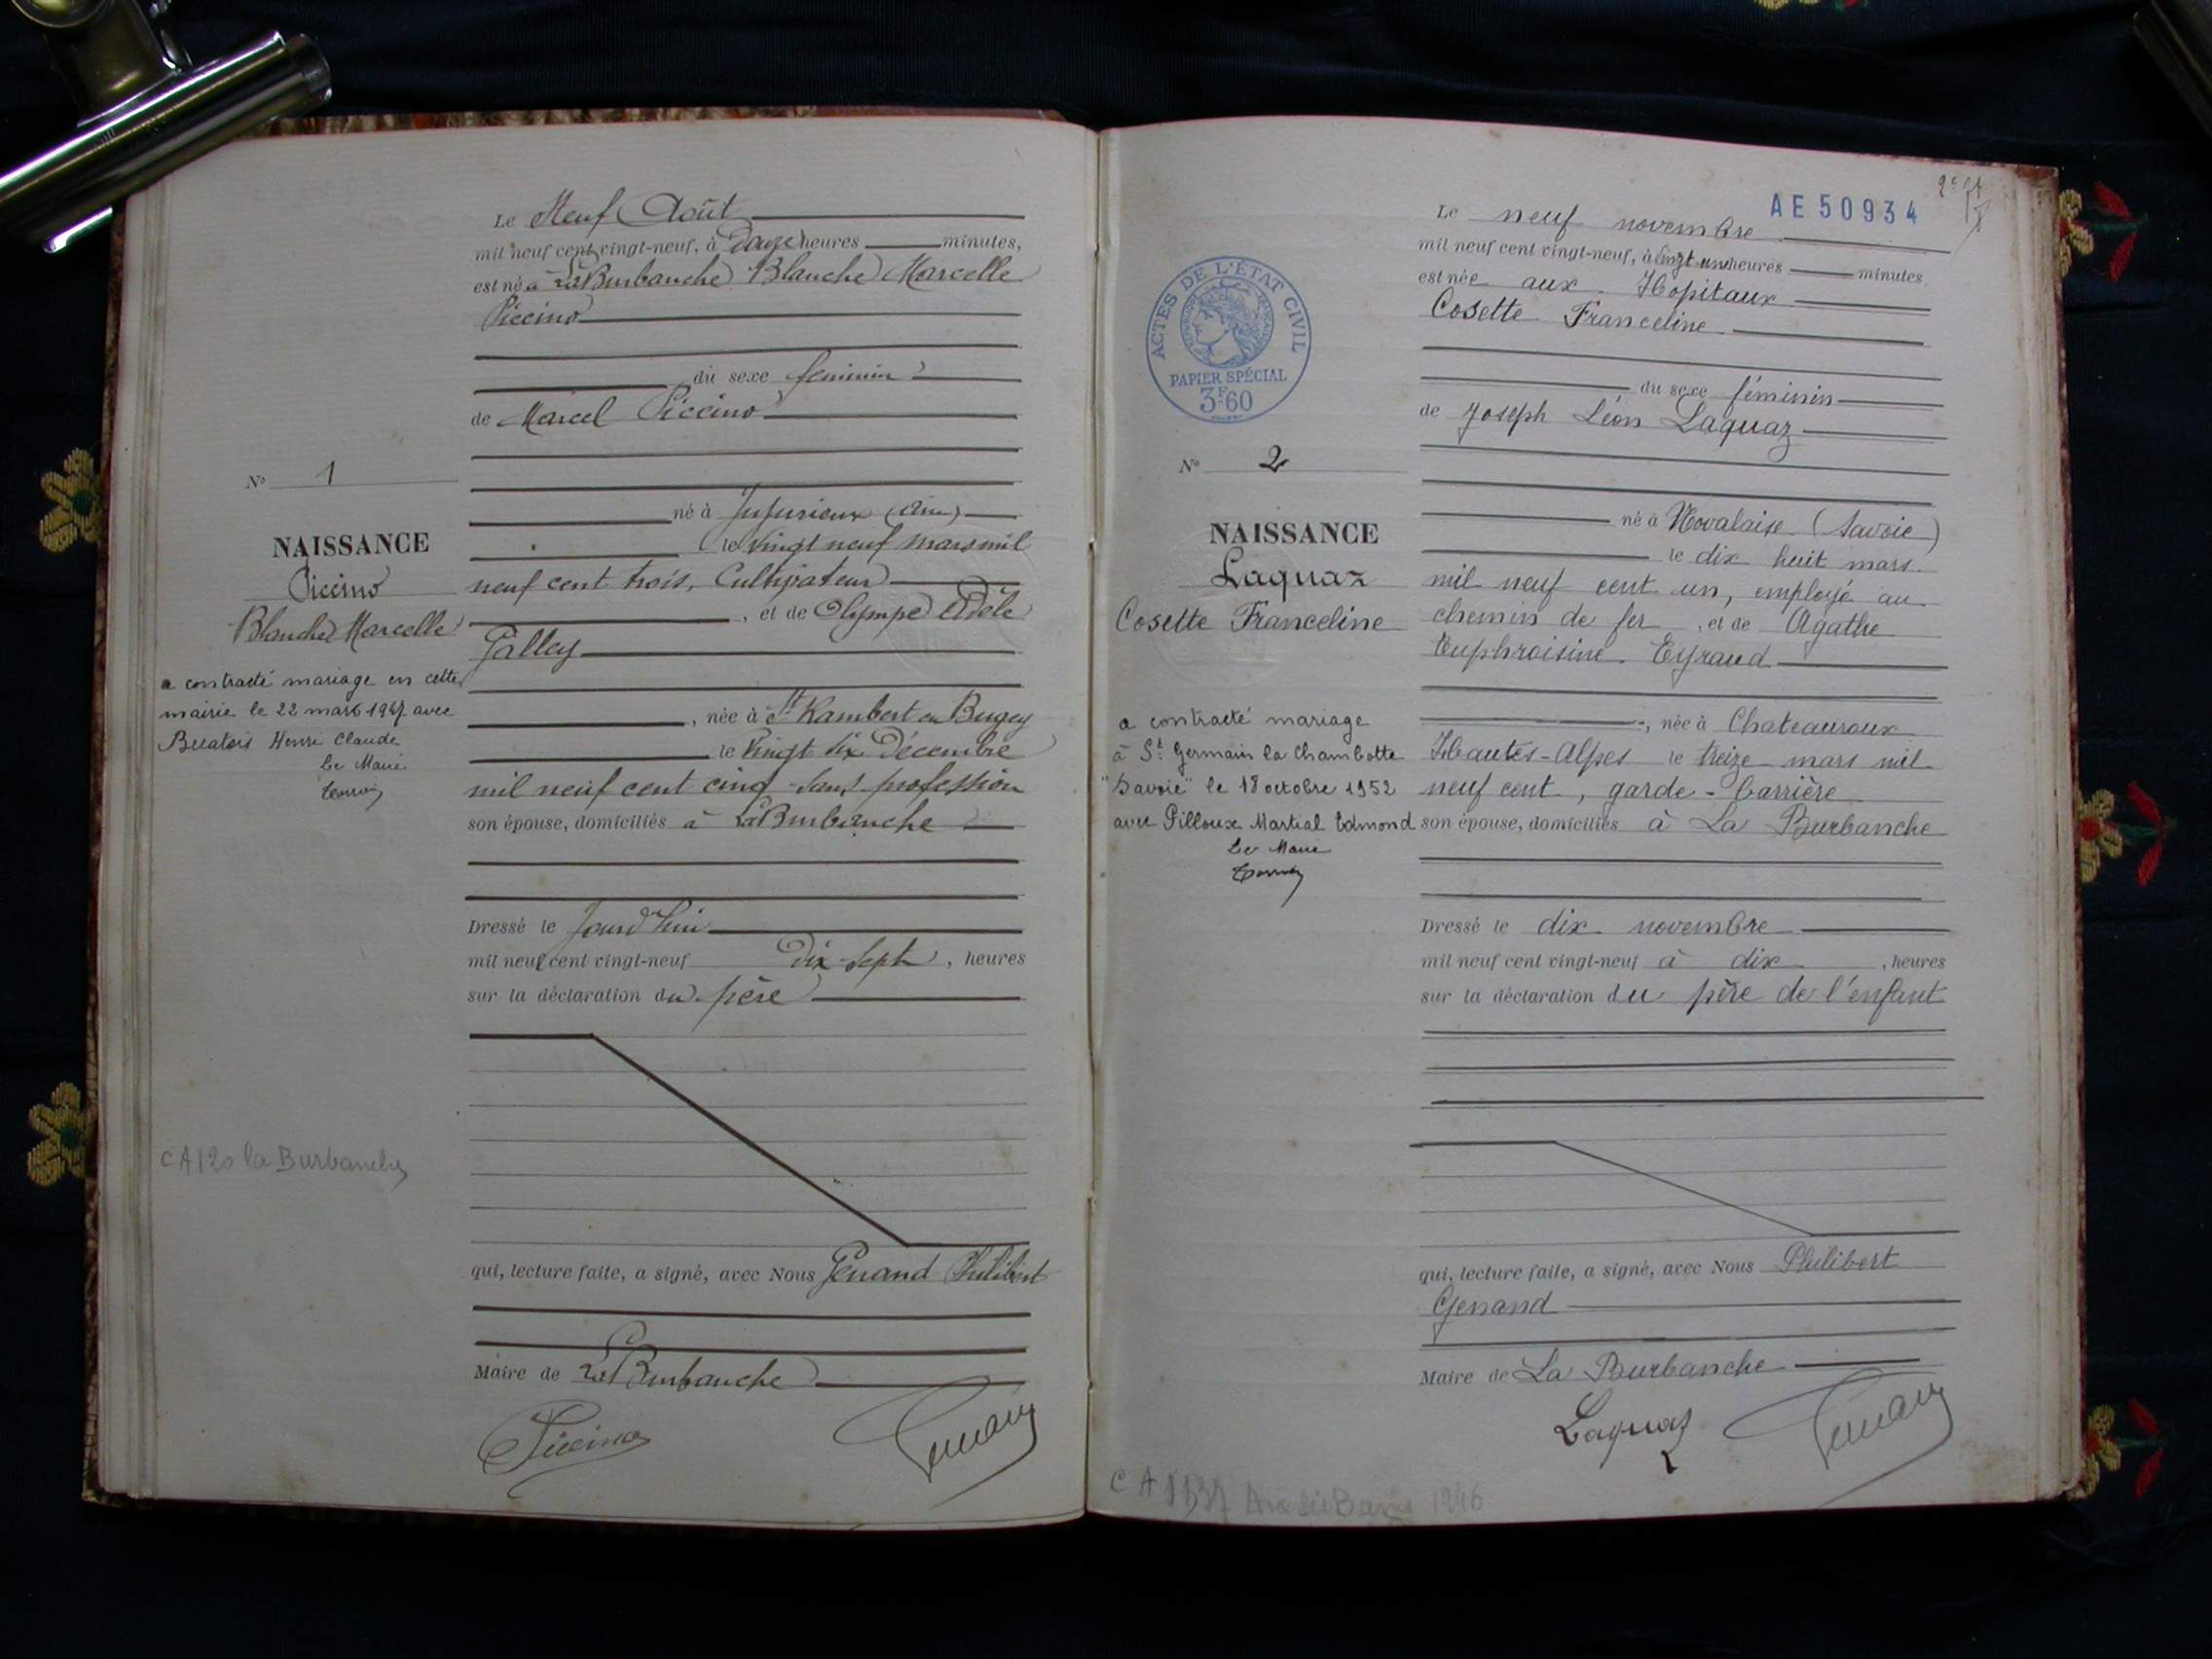 Le Neuf Août
mil neuf cent vingt-neuf, à Douze heures minutes,
est né à La Burbanche Blanche Marcelle
Piccino
du sexe féminin
de Marcel Piccino
né à Jujurieux (Ain)
le Vingt neuf mars mil
neuf cent trois, Cultivateur
, et de Olympe Adèle
Palley
, née à St Rambert en Bugey
le Vingt six Décembre
mil neuf cent cinq sans profession
son épouse, domiciliés à La Burbanche
Dressé le Jourd'hui
mil neuf cent vingt-neuf Dix-Sept, heures
sur la déclaration du père
qui, lecture faite, a signé, avec Nous Génand Philibert
Maire de La Burbanche
Piccino
N° 1
NAISSANCE
Piccino
Blanche Marcelle
a contracté mariage en cette
mairie le 22 mars 1947 avec
Henri Claude
Le Maire
la Burbanche
AE50934
Le neuf novembre
mil neuf cent vingt-neuf, à vingt un heures minutes
est née aux Hopitaux
Cosette Franceline
du sexe féminin
de Joseph Léon Laquaz
né à Novalaise (Savoie)
le dix huit mars
mil neuf cent un, employé au
chemin de fer, et de Agathe
Euphroisine Eyraud
, née à Chateauroux
Hautes-Alpes le treize mars mil
neuf cent, garde-barrière
son épouse, domiciliés à La Burbanche
Dressé le dix novembre
mil neuf cent vingt-neuf à dix, heures
sur la déclaration du père de l'enfant
qui, lecture faite, a signé, avec Nous Philibert
Genand
Maire de La Burbanche
Laquaz
ACTES DE L'ÉTAT CIVIL
PAPIER SPÉCIAL
3F60
N° 2
NAISSANCE
Laquaz
Cosette Franceline
a contracté mariage
à St Germain la Chambotte
"Savoie" le 18 octobre 1952
avec Pilloux Martial Edmond
Le Maire